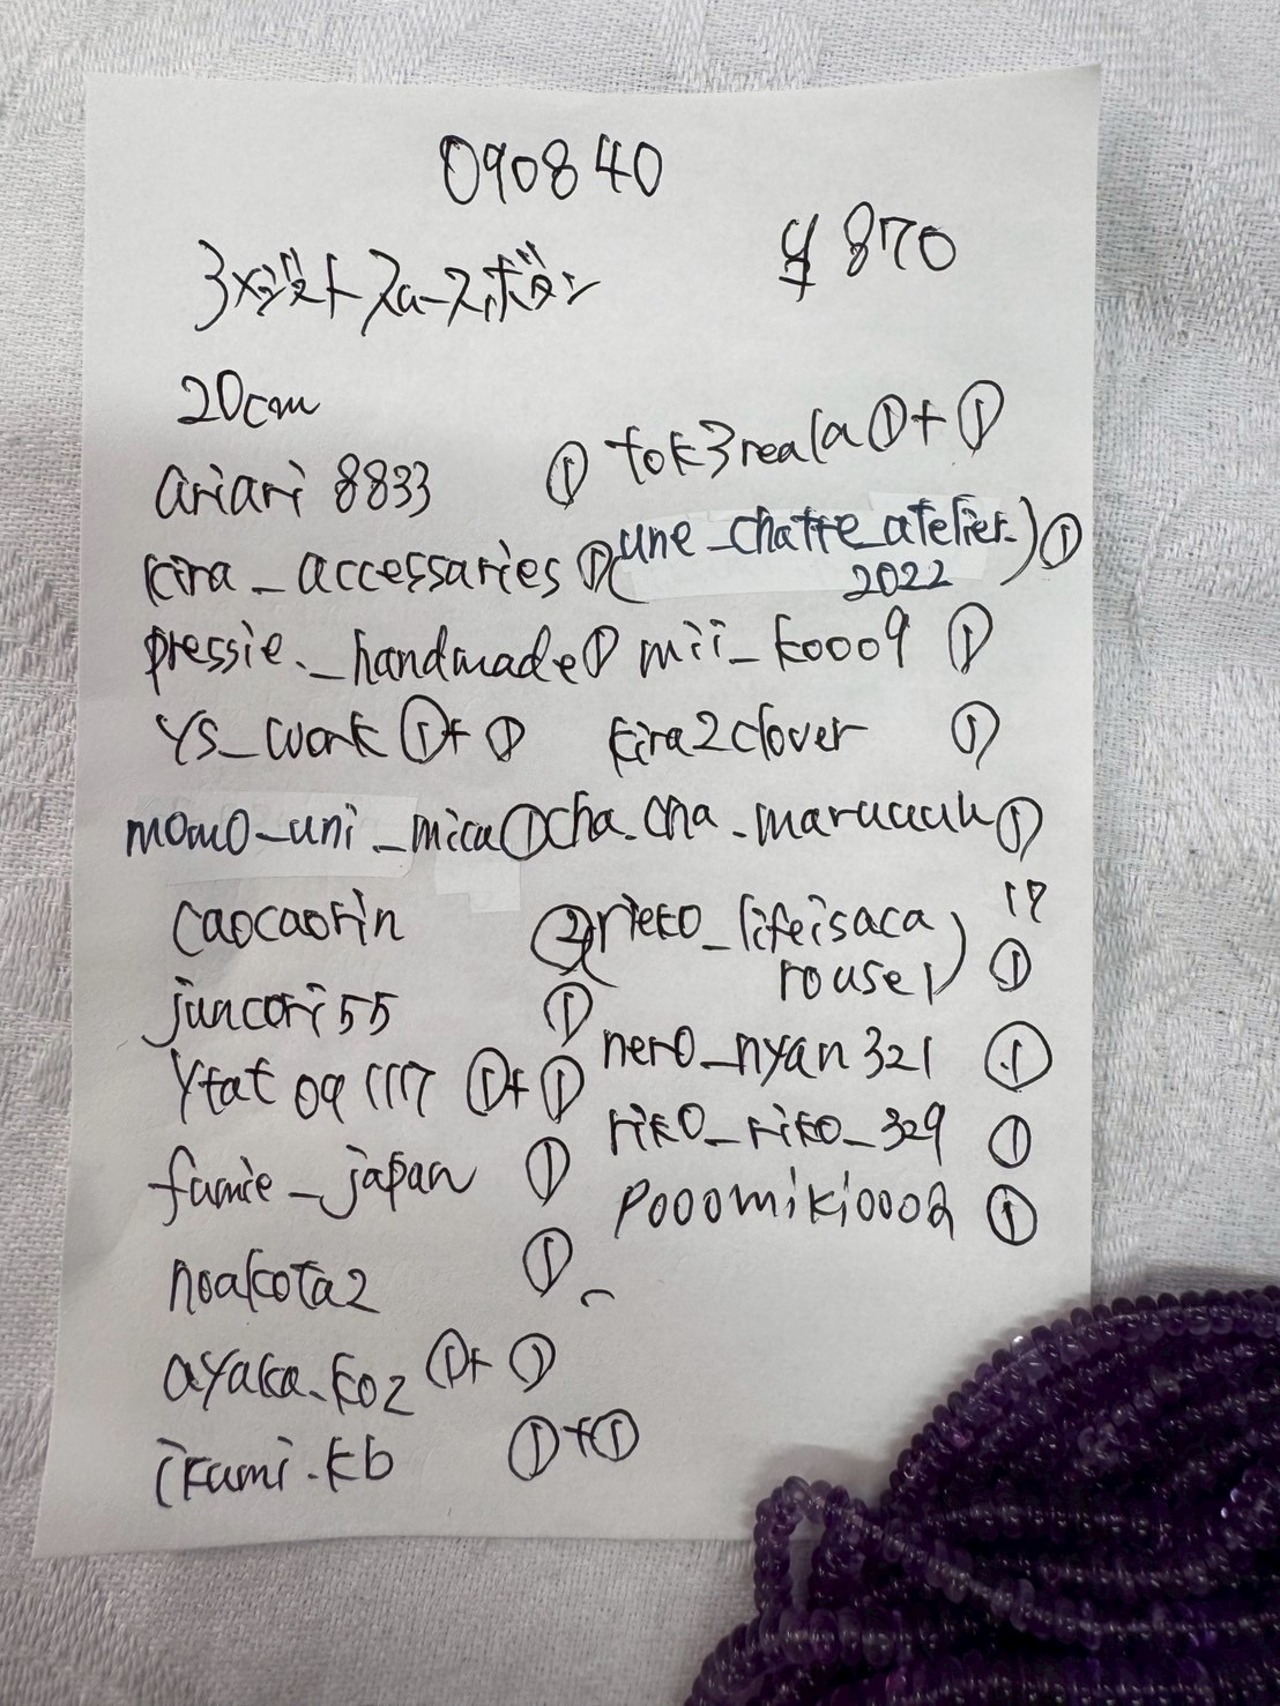 090840
¥870
3×2アメジストスムースボタン
20cm
ariari 8833 ①
kira_accessaries ①
pressie._handmade ①
ys_work ①+①
momo_uni_mica ①
caocaorin ②
juncori55 ①
ytat091117 ①+①
fumie_japan ①
noakota2 ①
ayaka.ko2 ①+①
ikumi.kb ①+①
tok3reala ①+①
(une_chatte_atelier_
2022) ①
mii_k0009 ①
kira2clover ①
cha.cha.maruuuuu ①
(rieko_lifeisaca
rousel) ①
nero_nyan321 ①
riko_riko_329 ①